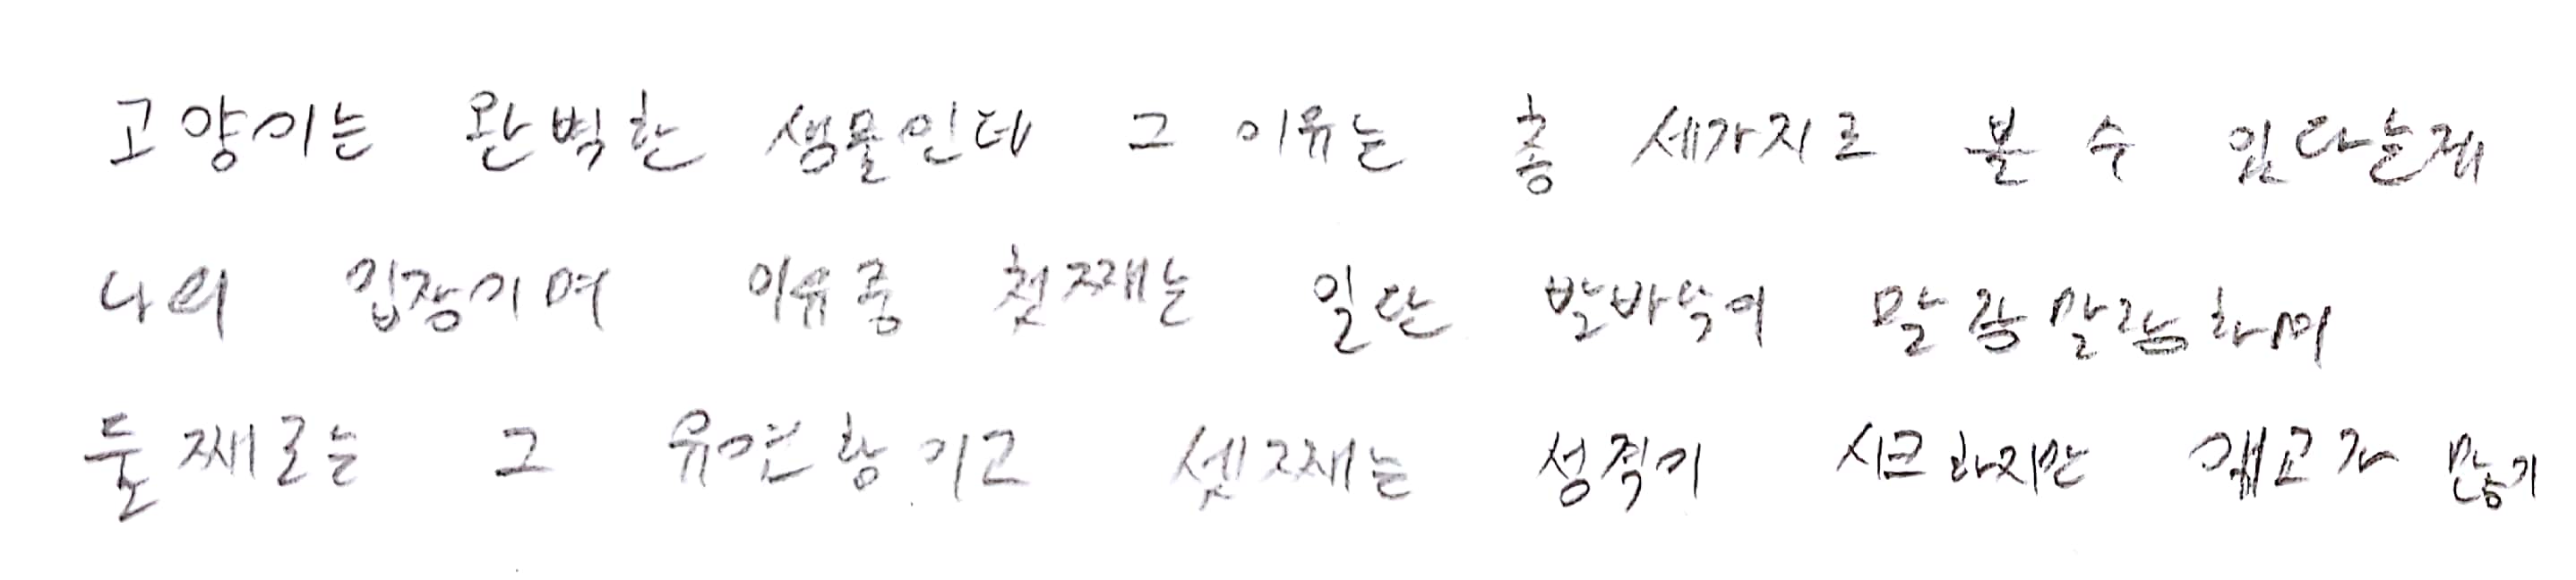 고양이는 완벽한 생물인데 그 이유는 총 세가지로 볼 수 있다는게
나의 입장이며 이유중 첫째는 일단 발바닥이 말랑말랑하며
둘째로는 그 유연함이고 셋째는 성격이 시크하지만 애교가 많기